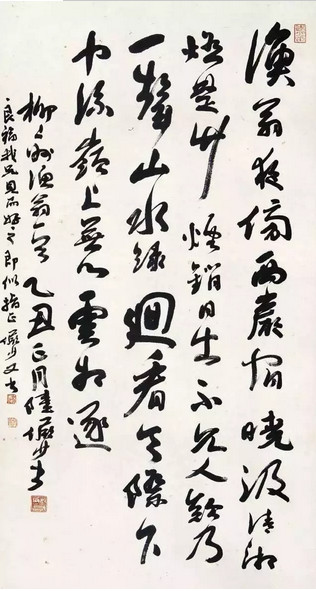 漁翁夜傍西巖宿曉汲清湘
燃楚竹煙銷日出不見人欸乃
一聲山水綠迴看天際下
中流巖上無心雲相逐
柳々州漁翁 乙丑正月陸儼少書
良福我兄見而好之即似指正儼少又書